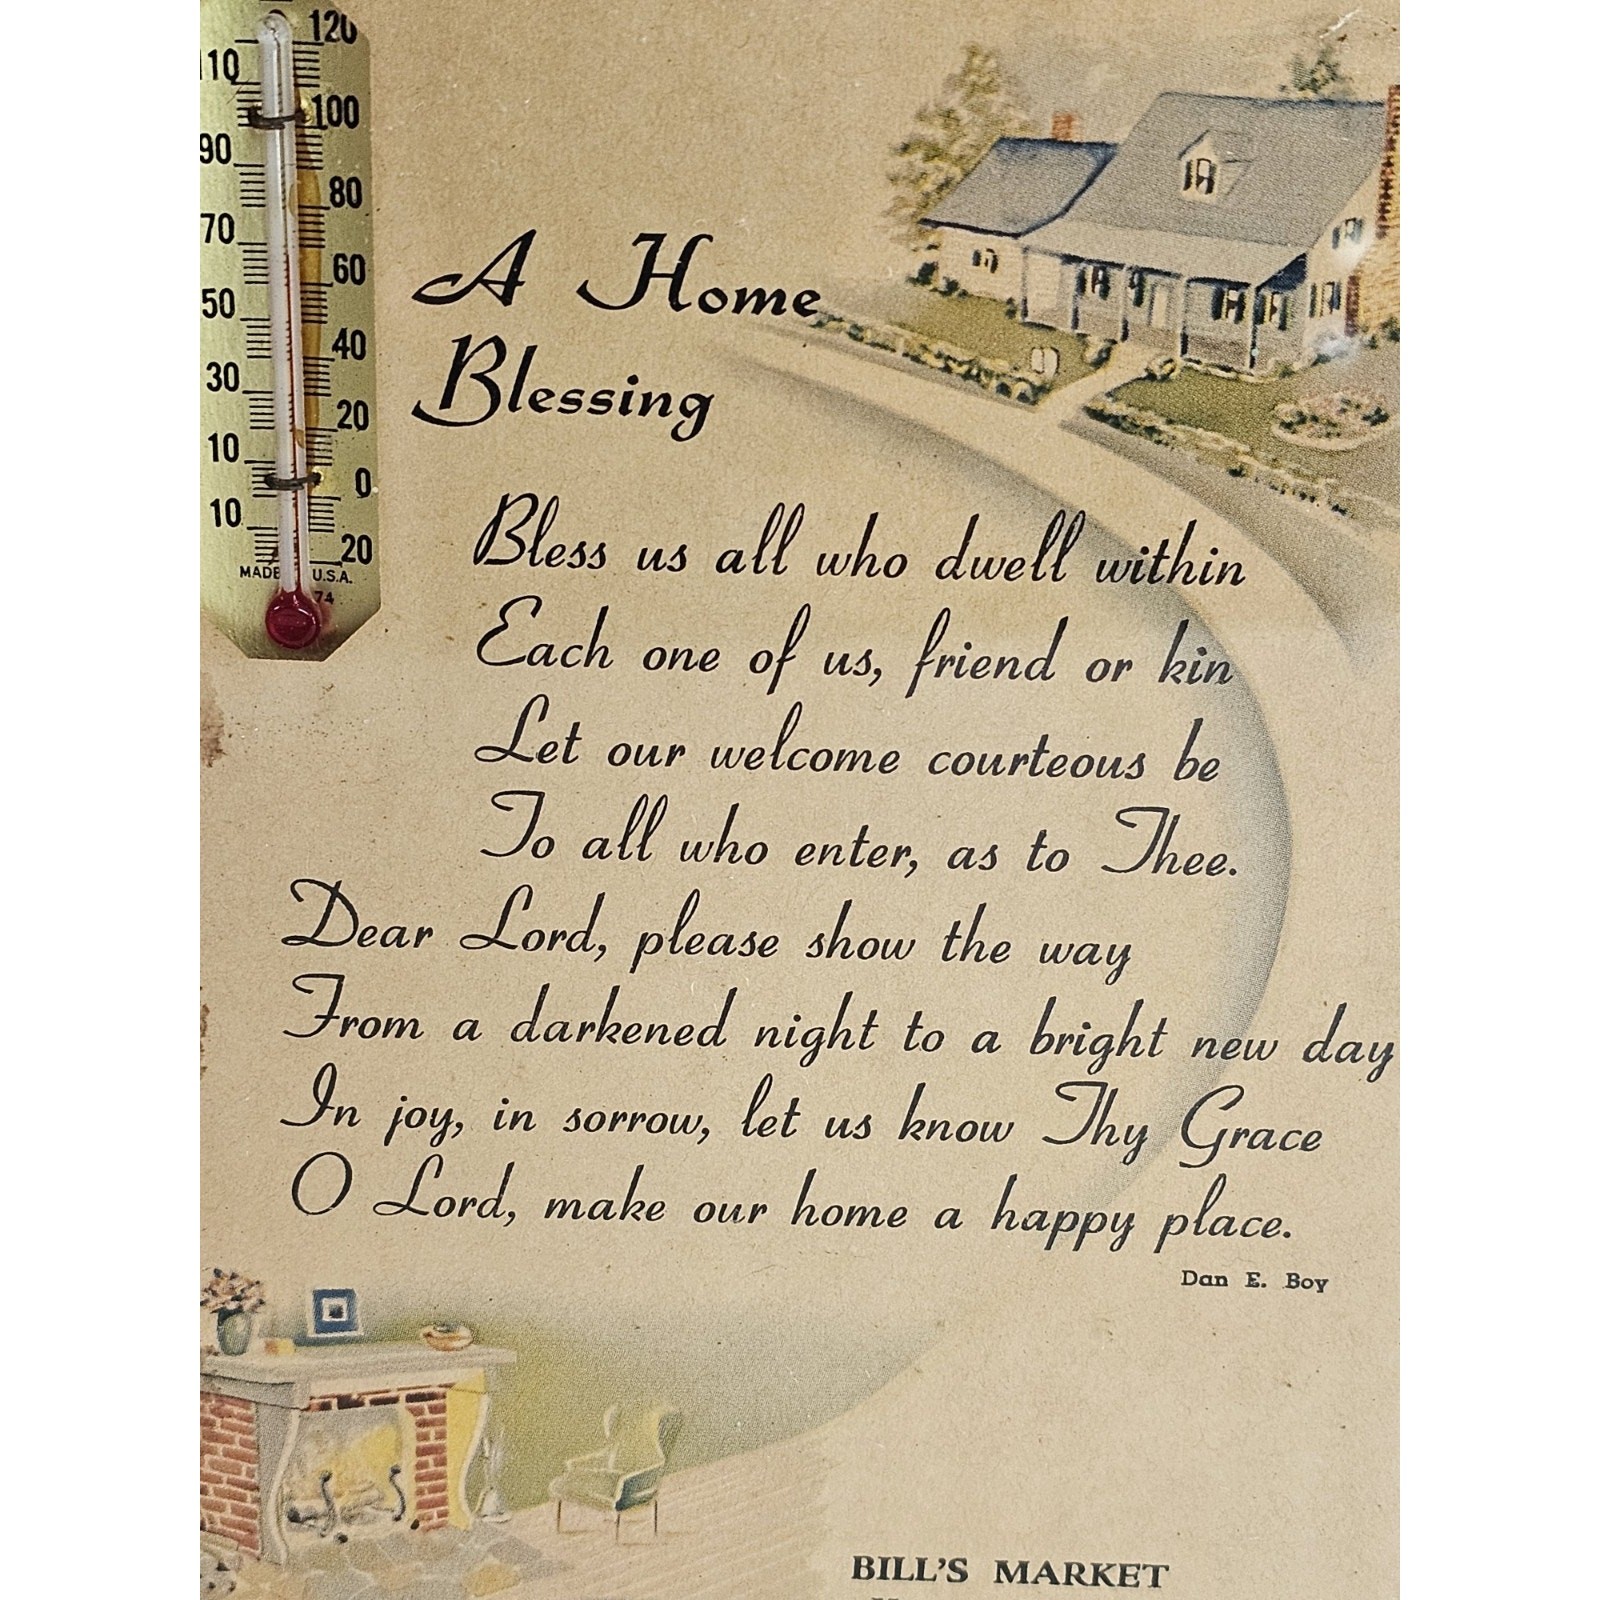 120
110
100
90
80
70
60
50
40
30
20
10
0
10
20
MADE U.S.A.
74
A Home
Blessing
Bless us all who dwell within
Each one of us, friend or kin
Let our welcome courteous be
To all who enter, as to Thee.
Dear Lord, please show the way
From a darkened night to a bright new day
In joy, in sorrow, let us know Thy Grace
O Lord, make our home a happy place.
Dan E. Boy
BILL'S MARKET